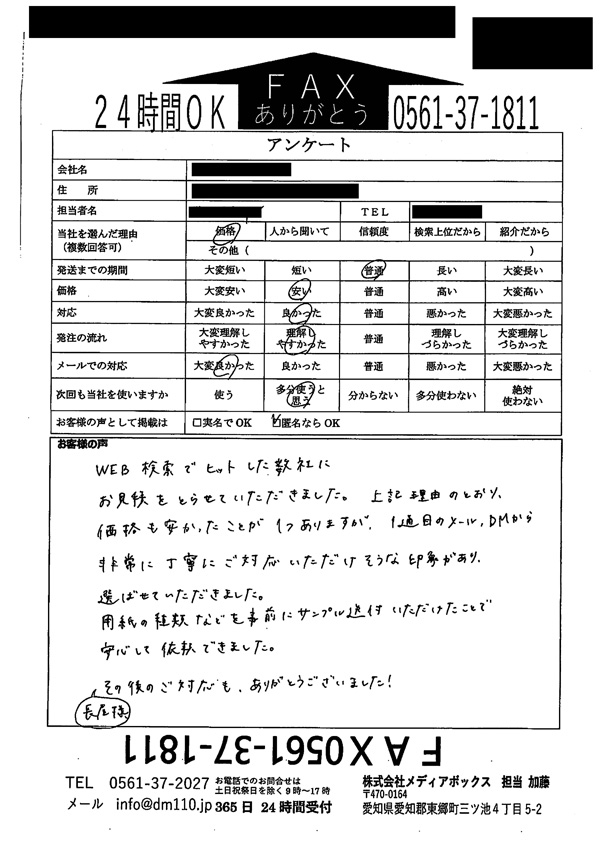 FAX
ありがとう
24時間OK
0561-37-1811
アンケート
会社名
住 所
担当者名 TEL
当社を選んだ理由 (複数回答可) 価格 人から聞いて 信頼度 検索上位だから 紹介だから
その他 ( )
発送までの期間 大変短い 短い 普通 長い 大変長い
価格 大変安い 安い 普通 高い 大変高い
対応 大変良かった 良かった 普通 悪かった 大変悪かった
発注の流れ 大変理解しやすかった 理解しやすかった 普通 理解しづらかった 大変理解しづらかった
メールでの対応 大変良かった 良かった 普通 悪かった 大変悪かった
次回も当社を使いますか 使う 多分使うと思う 分からない 多分使わない 絶対使わない
お客様の声として掲載は □実名でOK ☑匿名ならOK
お客様の声
WEB 検索でヒットした数社に
お見積をとらせていただきました。上記理由のとおり、
価格も安かったことが1つありますが、1通目のメール、DMから
非常に丁寧にご対応いただけそうな印象があり、
選ばせていただきました。
用紙の種類などを事前にサンプル送付いただけたことで
安心して依頼できました。
その後のご対応も、ありがとうございました!
長屋様
FAX0561-37-1811
TEL 0561-37-2027 お電話でのお問合せは 土日祝祭日を除く9時~17時
メール info@dm110.jp 365日 24時間受付
株式会社メディアボックス 担当 加藤
〒470-0164
愛知県愛知郡東郷町三ツ池4丁目5-2